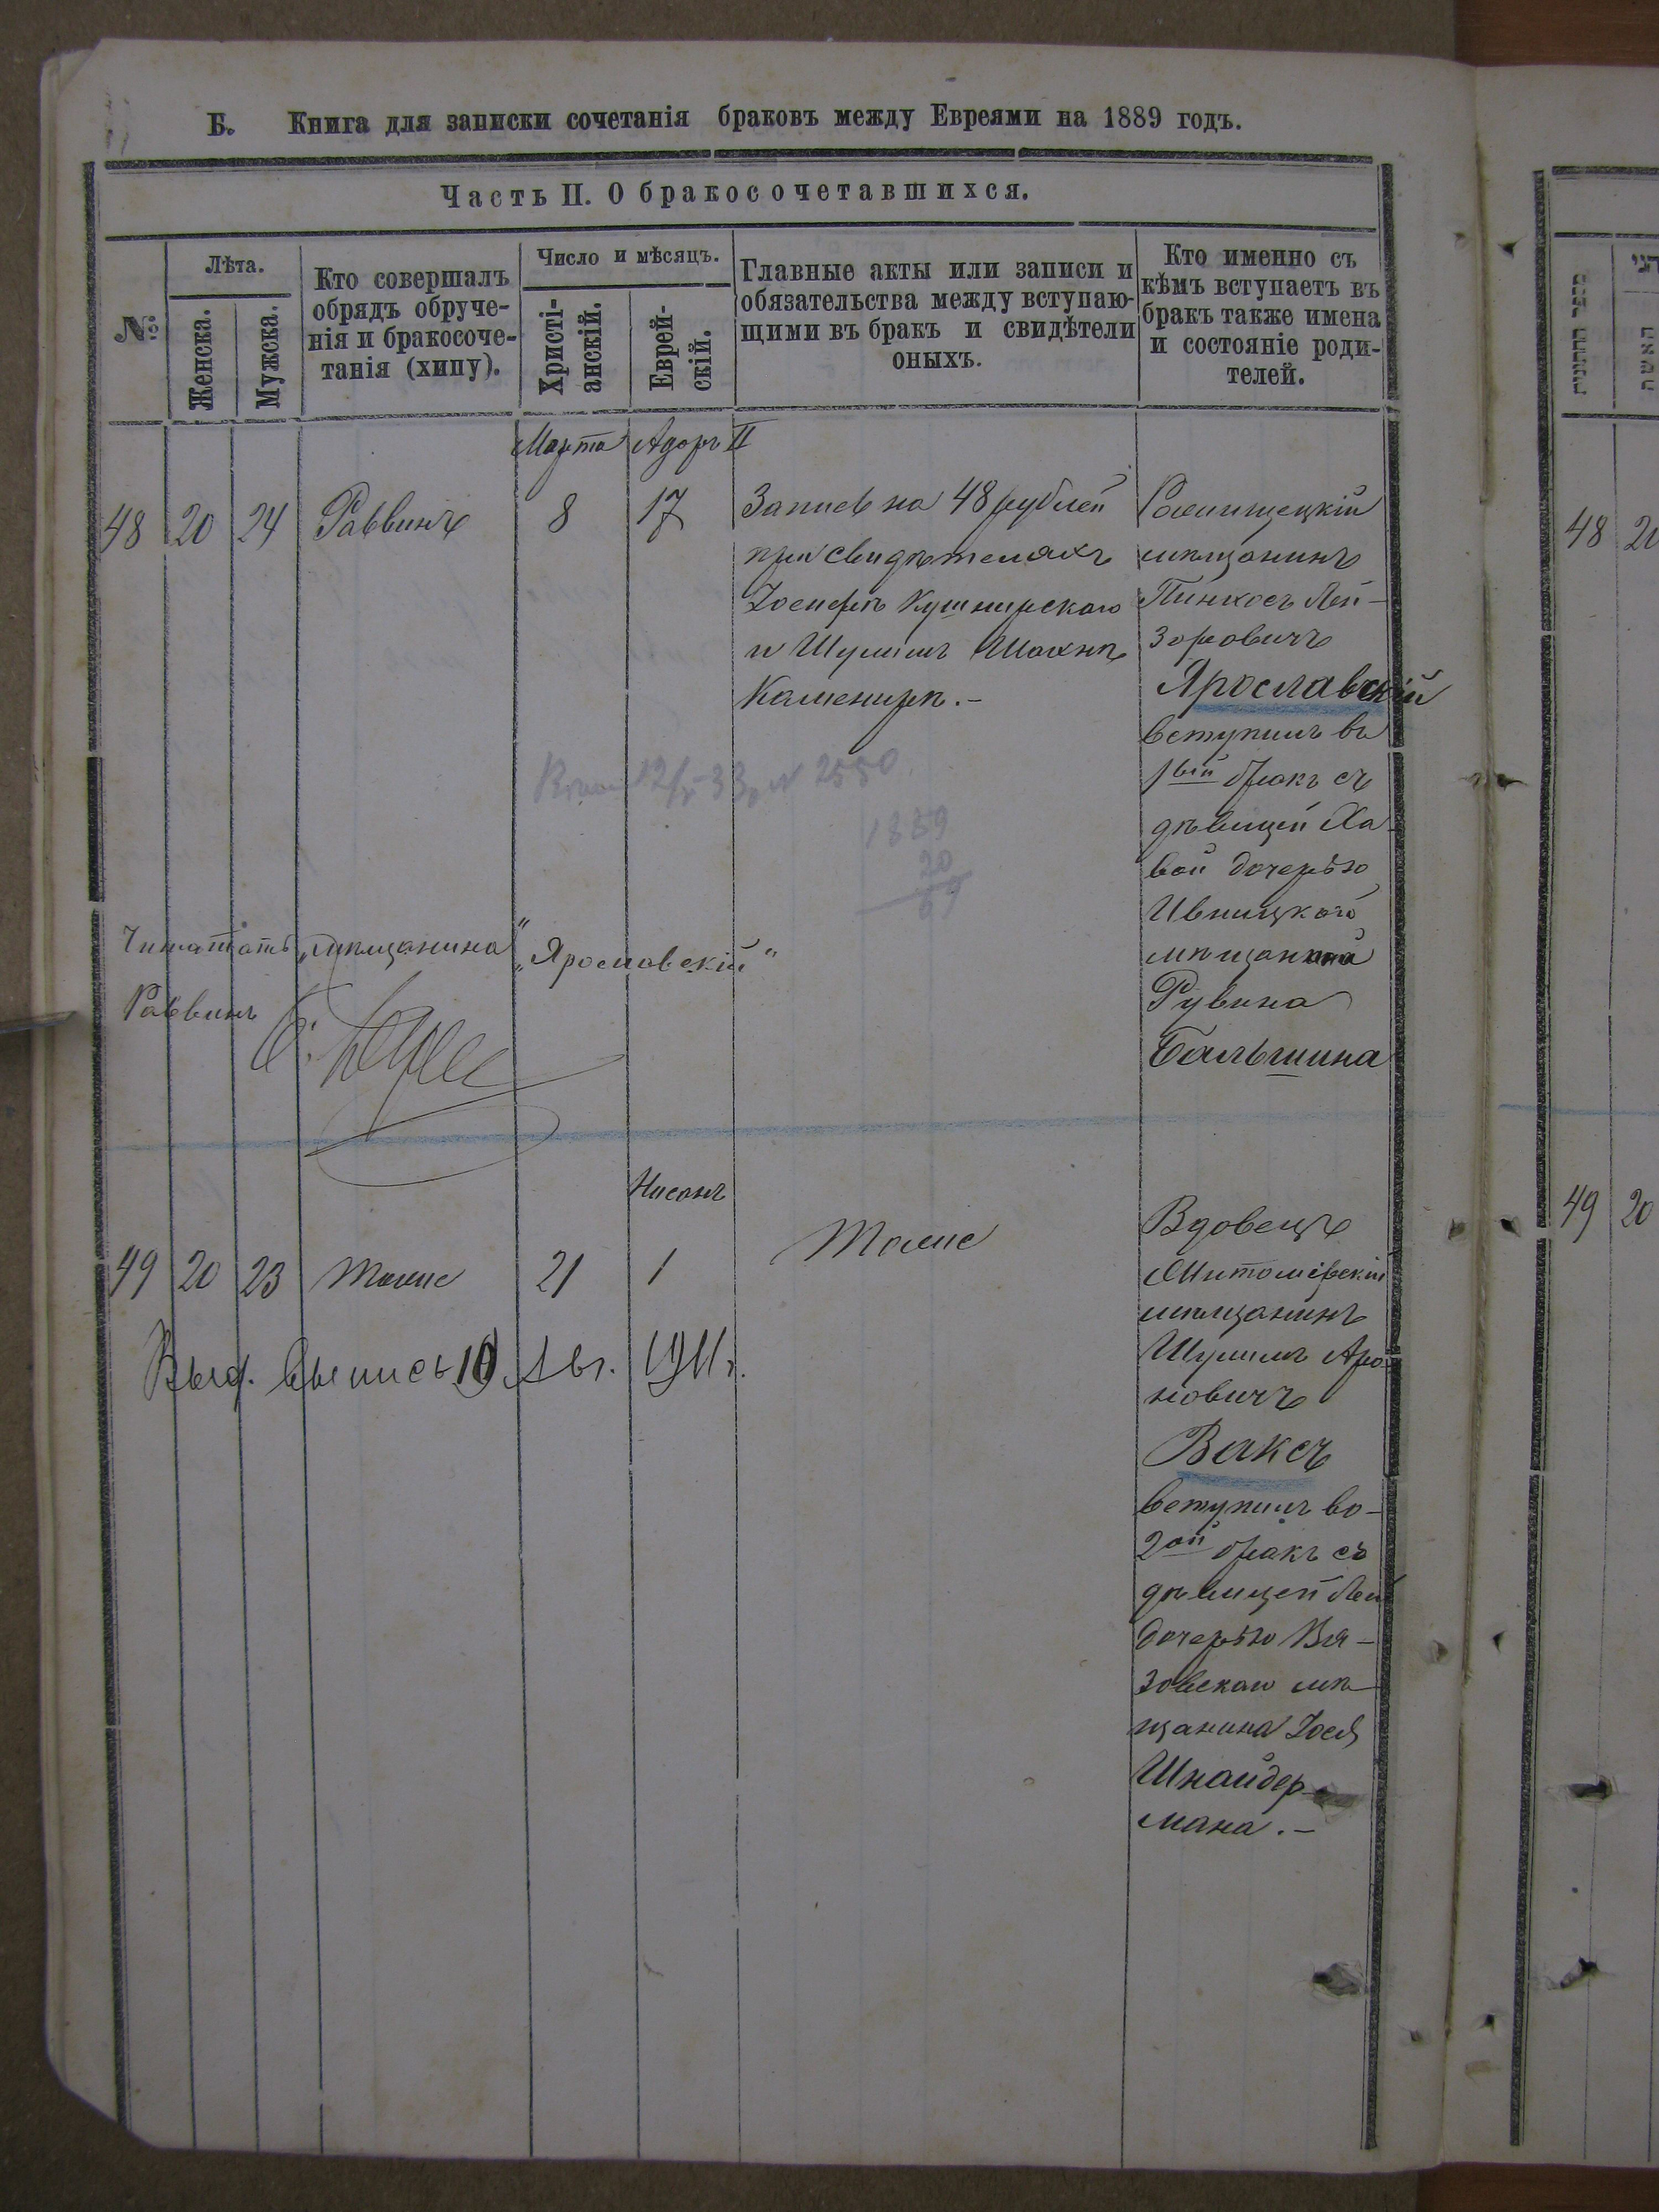 Б. Книга для записки сочетанія браковъ между Евреями на 1889 годъ.
Часть II. О бракосочетавшихся.
№
Лѣта.
Женска.
Мужска.
Кто совершалъ
обрядъ обруче-
нія и бракосоче-
танія (хипу).
Число и мѣсяцъ.
Христі-
анскій.
Еврей-
скій.
Главные акты или записи и
обязательства между вступаю-
щими въ бракъ и свидѣтели
оныхъ.
Кто именно съ
кѣмъ вступаетъ въ
бракъ также имена
и состояніе роди-
телей.
Марта Адоръ II
48 20 24 Раввинъ 8 17
Запись на 48 рублей
при свидѣтеляхъ
Іосифѣ Кушнирскаго
и Шулимъ Шахнѣ
Каменирѣ.-
мѣщанинъ
Пинхосъ Лей-
зоровичъ
Ярославскій
вступилъ въ
1вый бракъ съ
дѣвицей Ха-
вой дочерью
Ивницкого
мѣщанина
Рувина
Бальшина
12/X-33, № 2550
1889
20
69
Читать „мѣщанина" „Ярославскій"
Раввинъ
Нисанъ
49 20 23 Тоже 21 1 Тоже
Вдовецъ
Житомірскій
мѣщанинъ
Шулимъ Аро-
новичъ
Ваксъ
вступилъ во-
2ой бракъ съ
дѣвицей Леей
дочерью Вя-
зовскаго мѣ-
щанина Іося
Шнайдер-
мана.-
Выд. выпись 10 Авг. 1911 г.
48 20
49 20